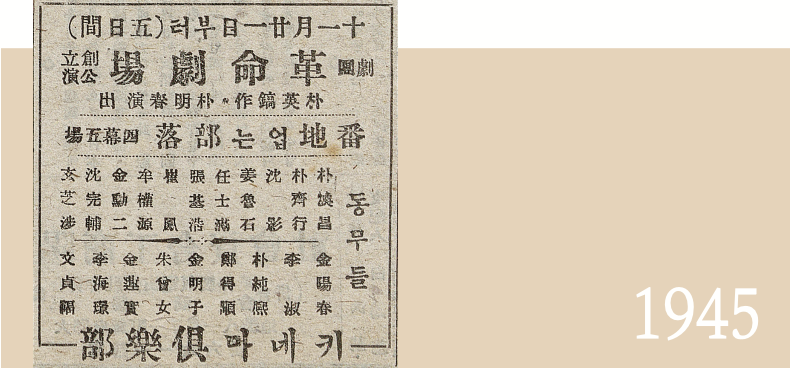 十一月廿一日부터(五日間)
劇團 革命劇場 創立公演
朴英鎬作・朴明春演出
番地업는部落 四幕五場
동무들
朴昌
朴齊行
沈影
姜魯石
任士滿
張基浩
崔鳳
牟權源
金勳二
沈完輔
玄芝涉
金陽春
李淑
朴純熙
鄭得順
金明子
朱曾女
金蓮實
李海璟
文貞福
키네마俱樂部
1945